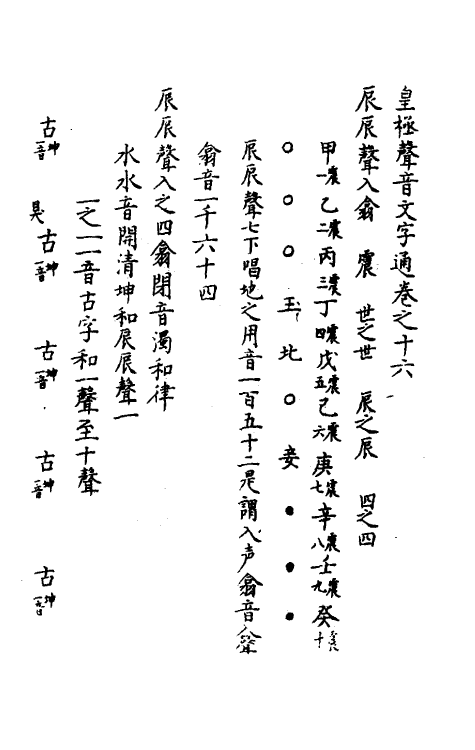 皇極聲音文字通卷之十六
辰辰聲入翕 震 世之世 辰之辰 四之四
甲一震乙二震丙三震丁四震戊五震己六震庚七震辛八震壬九震癸十
○ ○ ○ 玉 北 ○ 妾 ● ● ●
辰辰聲七下唱地之用音一百五十二是謂入声翕音
翕音一千六十四
辰辰聲入之四翕閉音濁和律
水水音開清坤和辰辰聲一
一之一一音古字和一聲至十聲
古坤一音 古坤一音 古坤一音 古坤一音 古坤一音